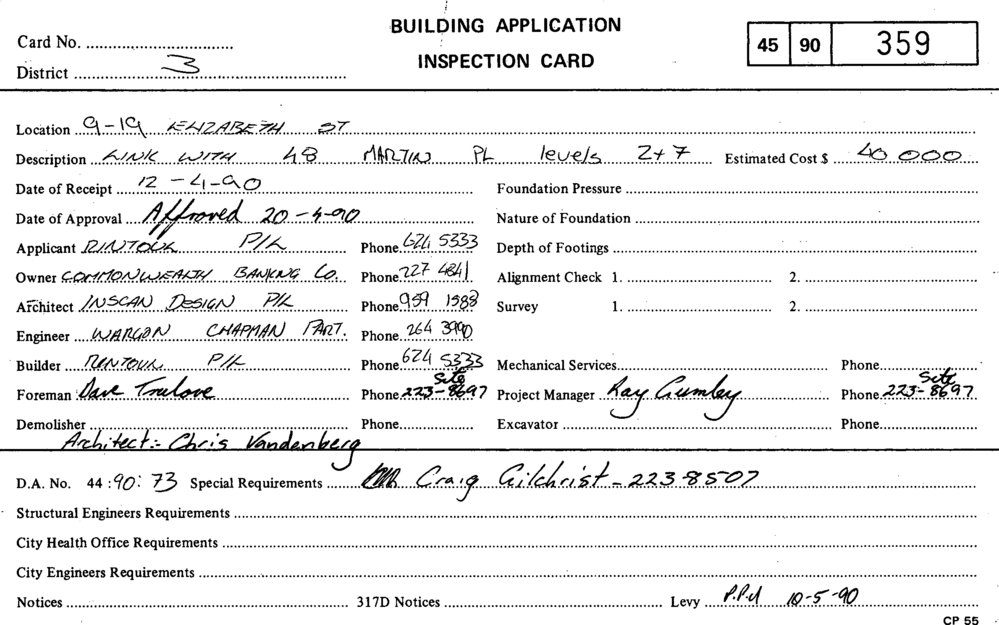 BUILDING APPLICATION
INSPECTION CARD
Card No.
District 3
45 90 359
Location 9-19 ELIZABETH ST
Description LINK WITH 48 MARTIN PL levels 2+7 Estimated Cost $ 40 000
Date of Receipt 12-4-90 Foundation Pressure
Date of Approval Approved 20-4-90 Nature of Foundation
Applicant RINTOUL P/L Phone 624 5333 Depth of Footings
Owner COMMONWEALTH BANKING Co. Phone 227 4841 Alignment Check 1. 2.
Architect INSCAN DESIGN P/L Phone 959 1588 Survey 1. 2.
Engineer WARGON CHAPMAN PART. Phone 264 3990
Builder RINTOUL P/L Phone 624 5333 Mechanical Services Phone
Foreman Dave Trulove Phone Site 223-8697 Project Manager Ray Gumley Phone Site 223-8697
Demolisher Phone Excavator Phone
Architect:- Chris Vandenberg
D.A. No. 44:90:73 Special Requirements Craig Gilchrist - 223-8507
Structural Engineers Requirements
City Health Office Requirements
City Engineers Requirements
Notices 317D Notices Levy P.Pd 10-5-90
CP 55